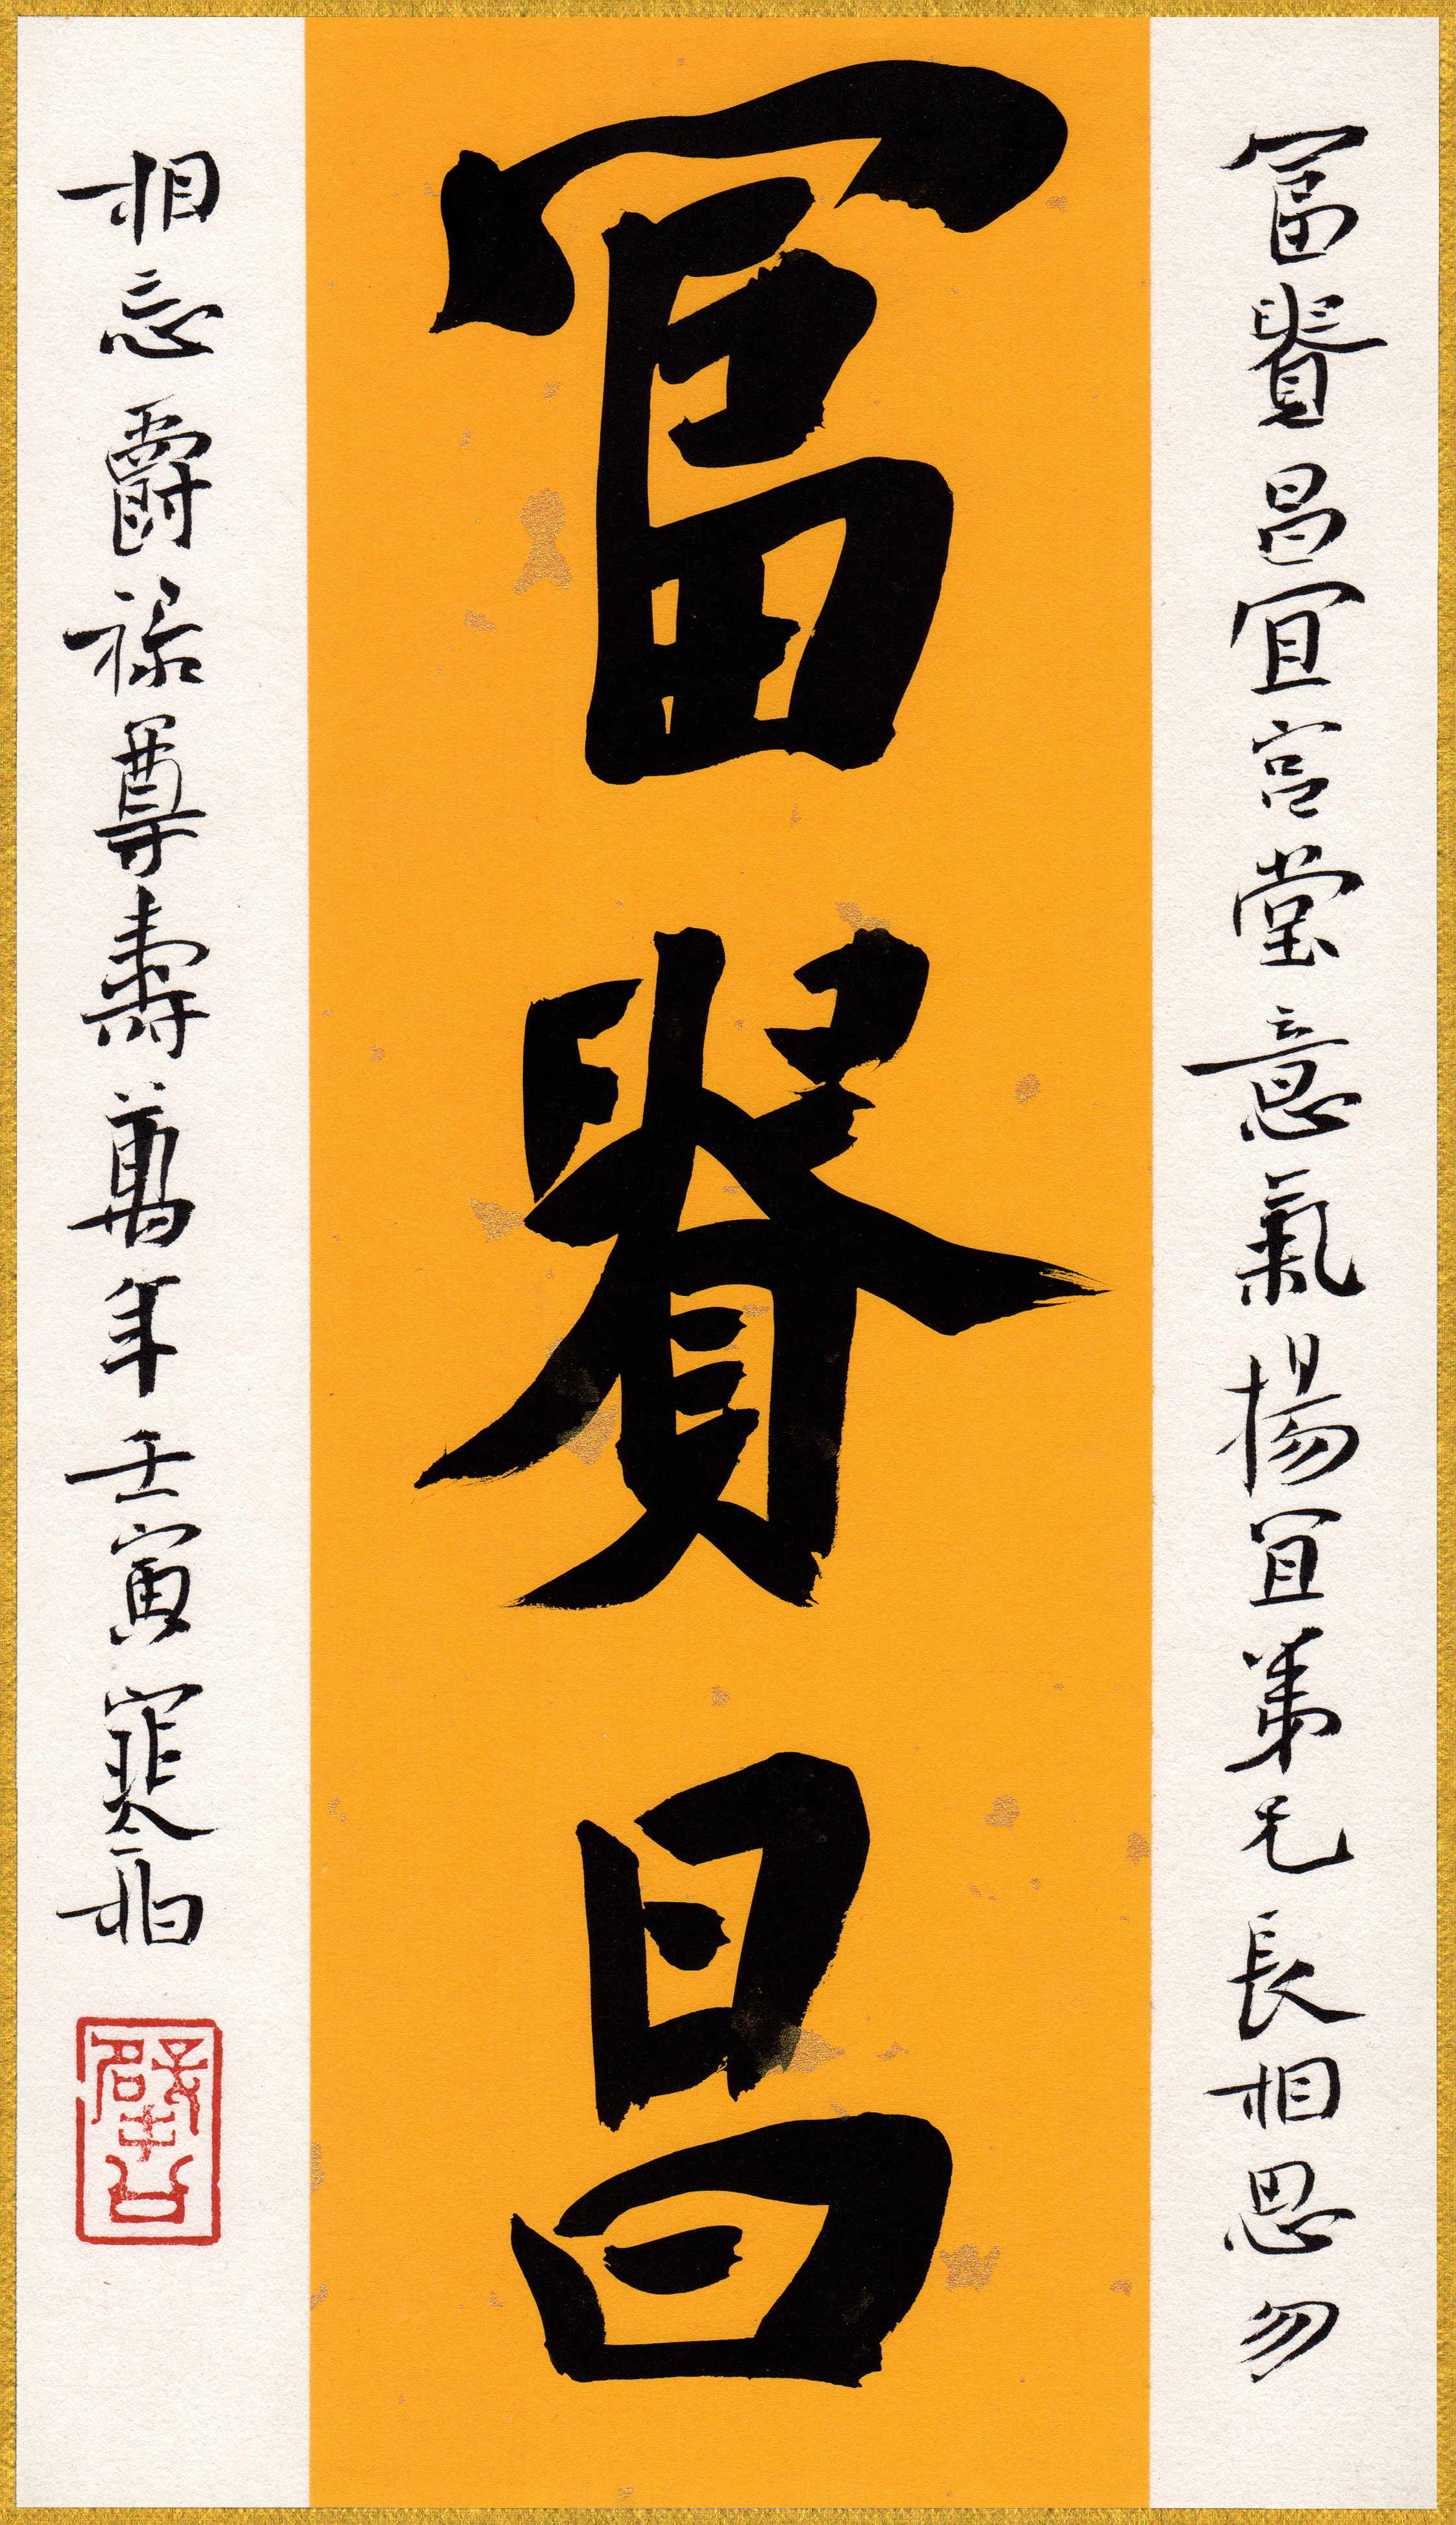 冨貴昌
冨貴昌宜宮堂意氣揚宜弟兄長相思勿
相忘爵祿尊壽萬年壬寅